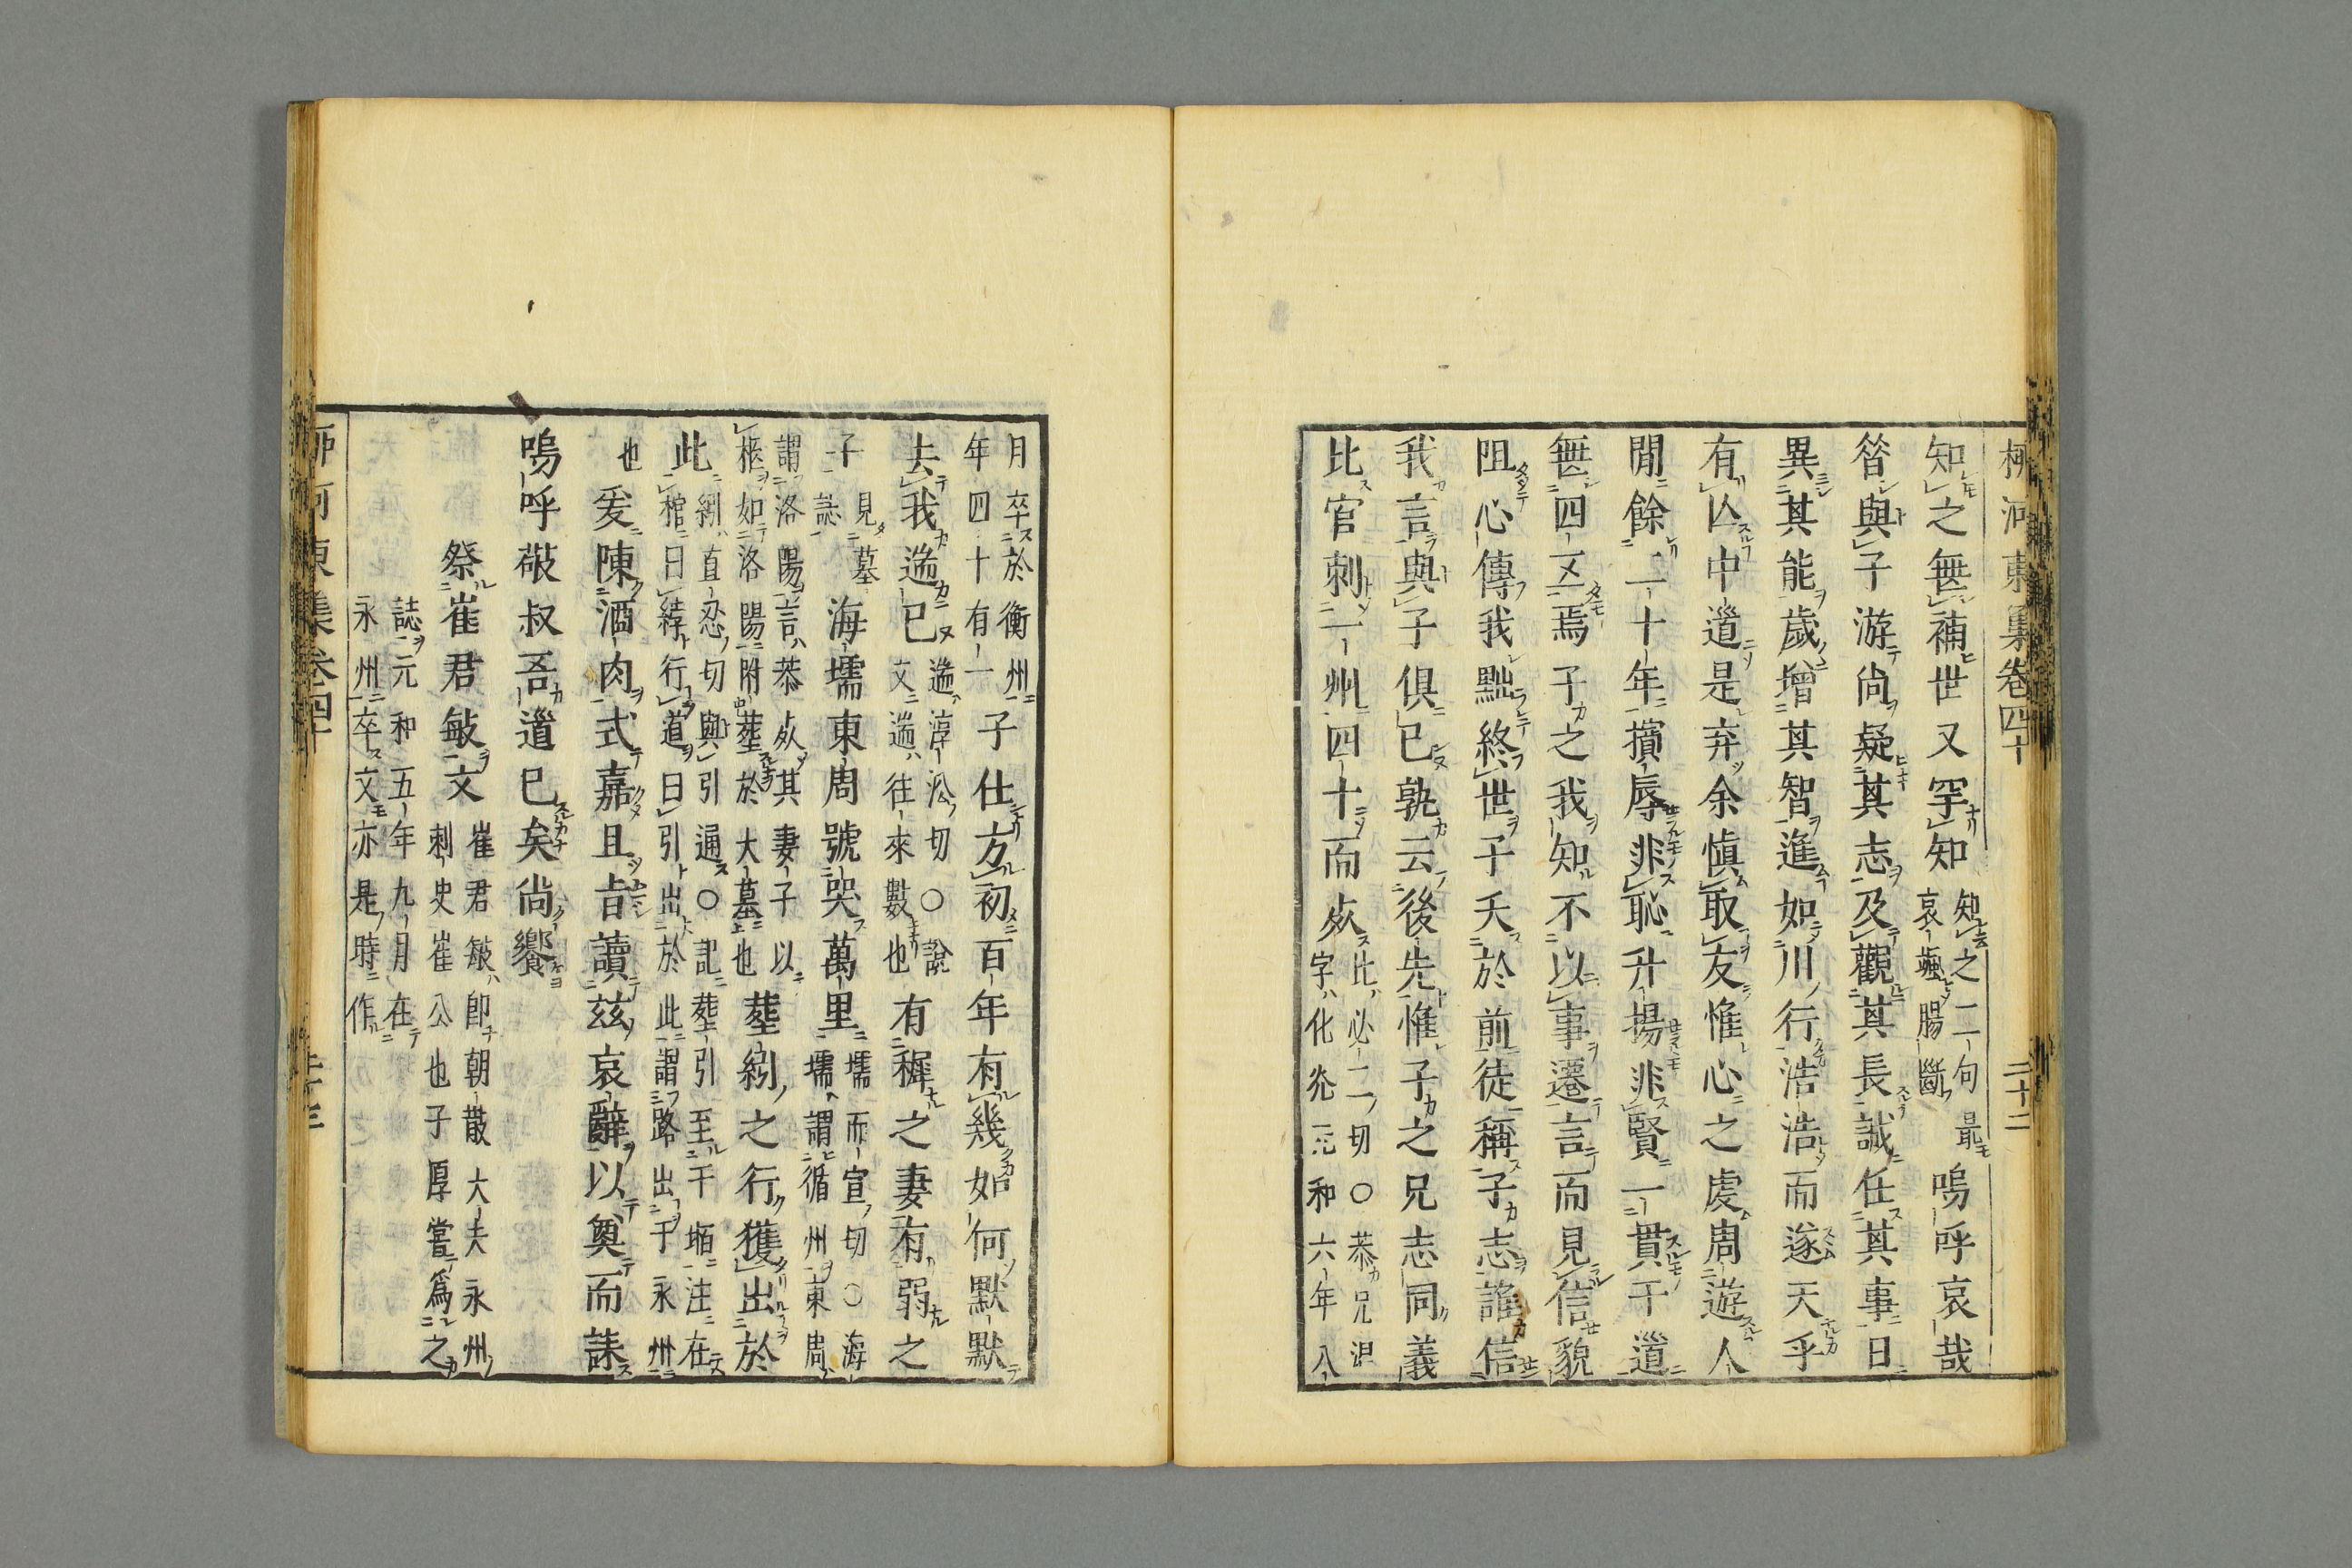 柳河東集卷四十 三十二
知之無補世又罕知知之二句最哀颯腸斷嗚呼哀哉
昝與子游尙疑其志及觀其長誠任其事日
異其能歲增其智進如川行浩浩而遂天乎
有亾中道是弃余愼取友惟心之處周遊人
閒餘二十年擯辱非恥升揚非賢一貫于道
無四五焉子之我知不以事遷言而見信貌
阻心傳我黜終世子夭於前徒稱子志誰信
我言與子俱已孰云後先惟子之兄志同義
比官刺二州四十而歿比必二切○恭兄温字化光元和六年八
月卒於衡州年四十有一子仕方初百年有幾如何默默
去我遄已遄淳沿切○說文遄往來數也有穉之妻有弱之
子見墓誌海壖東周號哭萬里壖而宣切○海壖謂循州東周
謂洛陽言恭歿其妻子以柩如洛陽附葬於大墓也葬紖之行獲出於
此紖直忍切與引通○記葬引至于堩注在棺曰綍行道曰引出於此謂路出于永州
也爰陳酒肉式嘉且旨讀茲哀辭以奠而誄
嗚呼敬叔吾道已矣尙饗
祭崔君敏文崔君敏卽朝散大夫永州刺史崔公也子厚嘗爲之
誌元和五年九月在永州卒文亦是時作
柳河東集卷四十 三十三